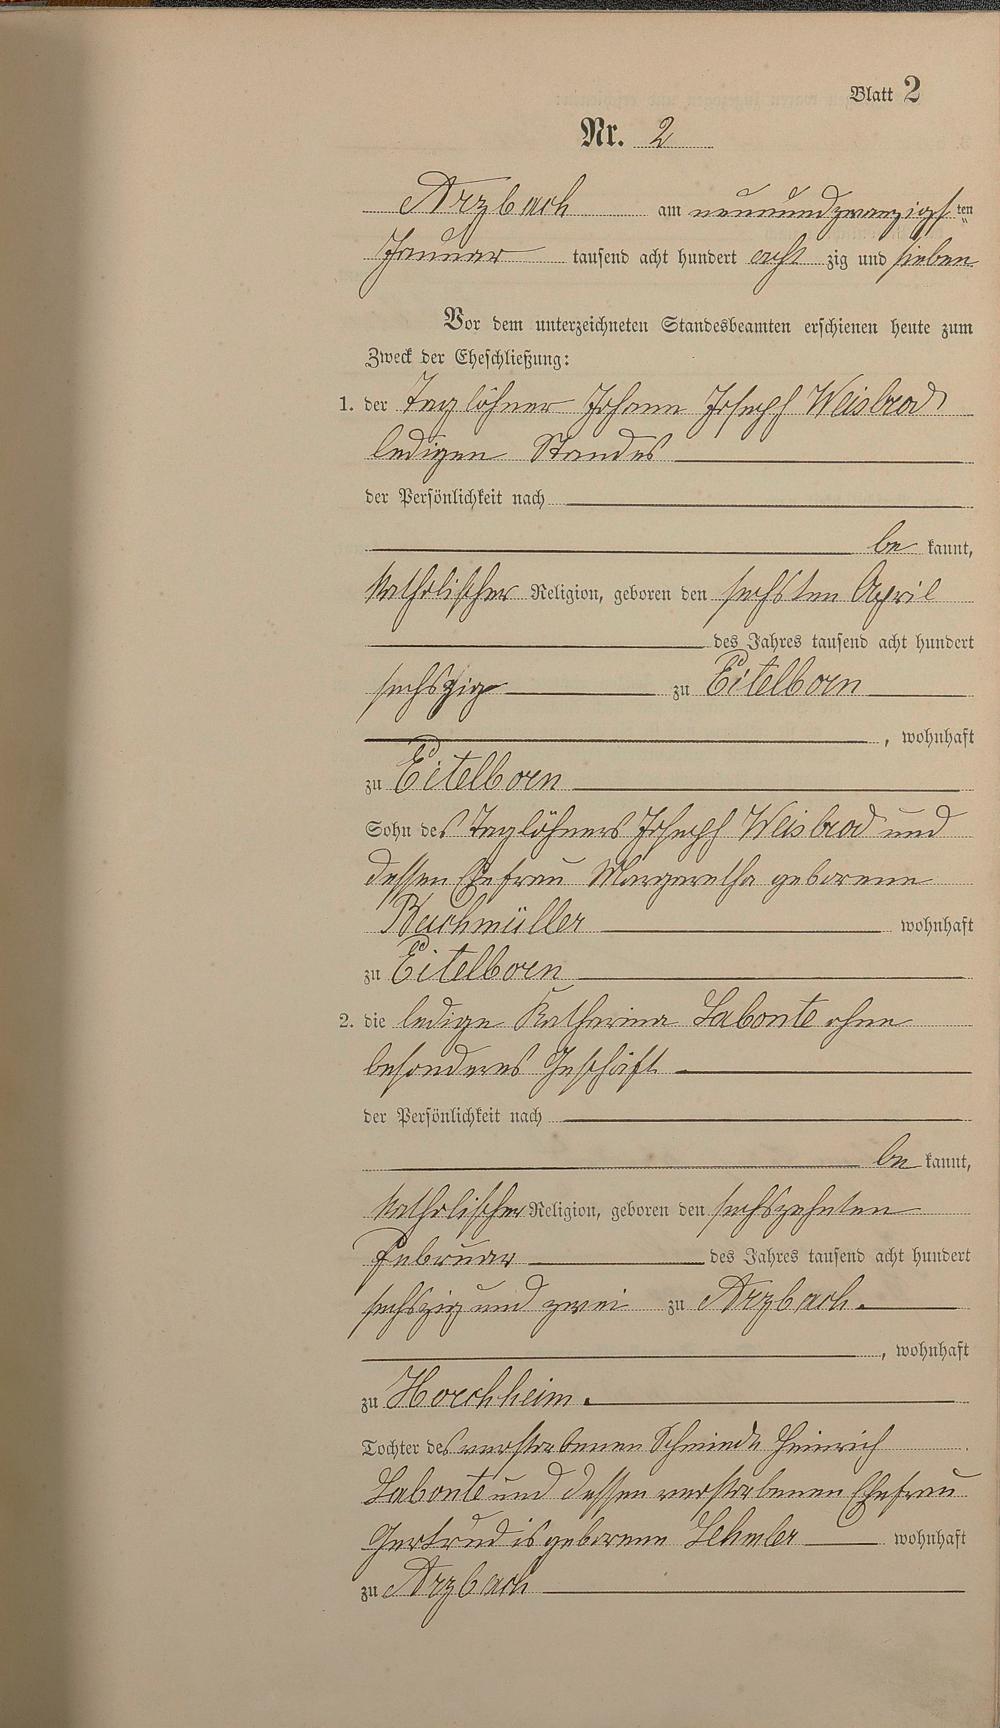 Blatt 2
Nr. 2
Arzbach am neunundzwanzigsten
Januar tausend acht hundert acht zig und sieben
Vor dem unterzeichneten Standesbeamten erschienen heute zum
Zweck der Eheschließung:
1. der Taglöhner Johann Joseph Weisbrod
ledigen Standes
der Persönlichkeit nach
be kannt,
katholischer Religion, geboren den sechsten April
des Jahres tausend acht hundert
sechszig zu Eitelborn
, wohnhaft
zu Eitelborn
Sohn des Taglöhners Joseph Weisbrod und
dessen Ehefrau Margaretha geborene
Bachmüller wohnhaft
zu Eitelborn
2. die ledige Katharina Labonte ohne
besonderes Geschäft
der Persönlichkeit nach
be kannt,
katholischer Religion, geboren den sechszehnten
Februar des Jahres tausend acht hundert
sechszig und zwei zu Arzbach.
, wohnhaft
zu Horchheim.
Tochter des verstorbenen Schmieds Heinrich
Labonte und dessen verstorbenen Ehefrau
Gertrudis geborene wohnhaft
zu Arzbach